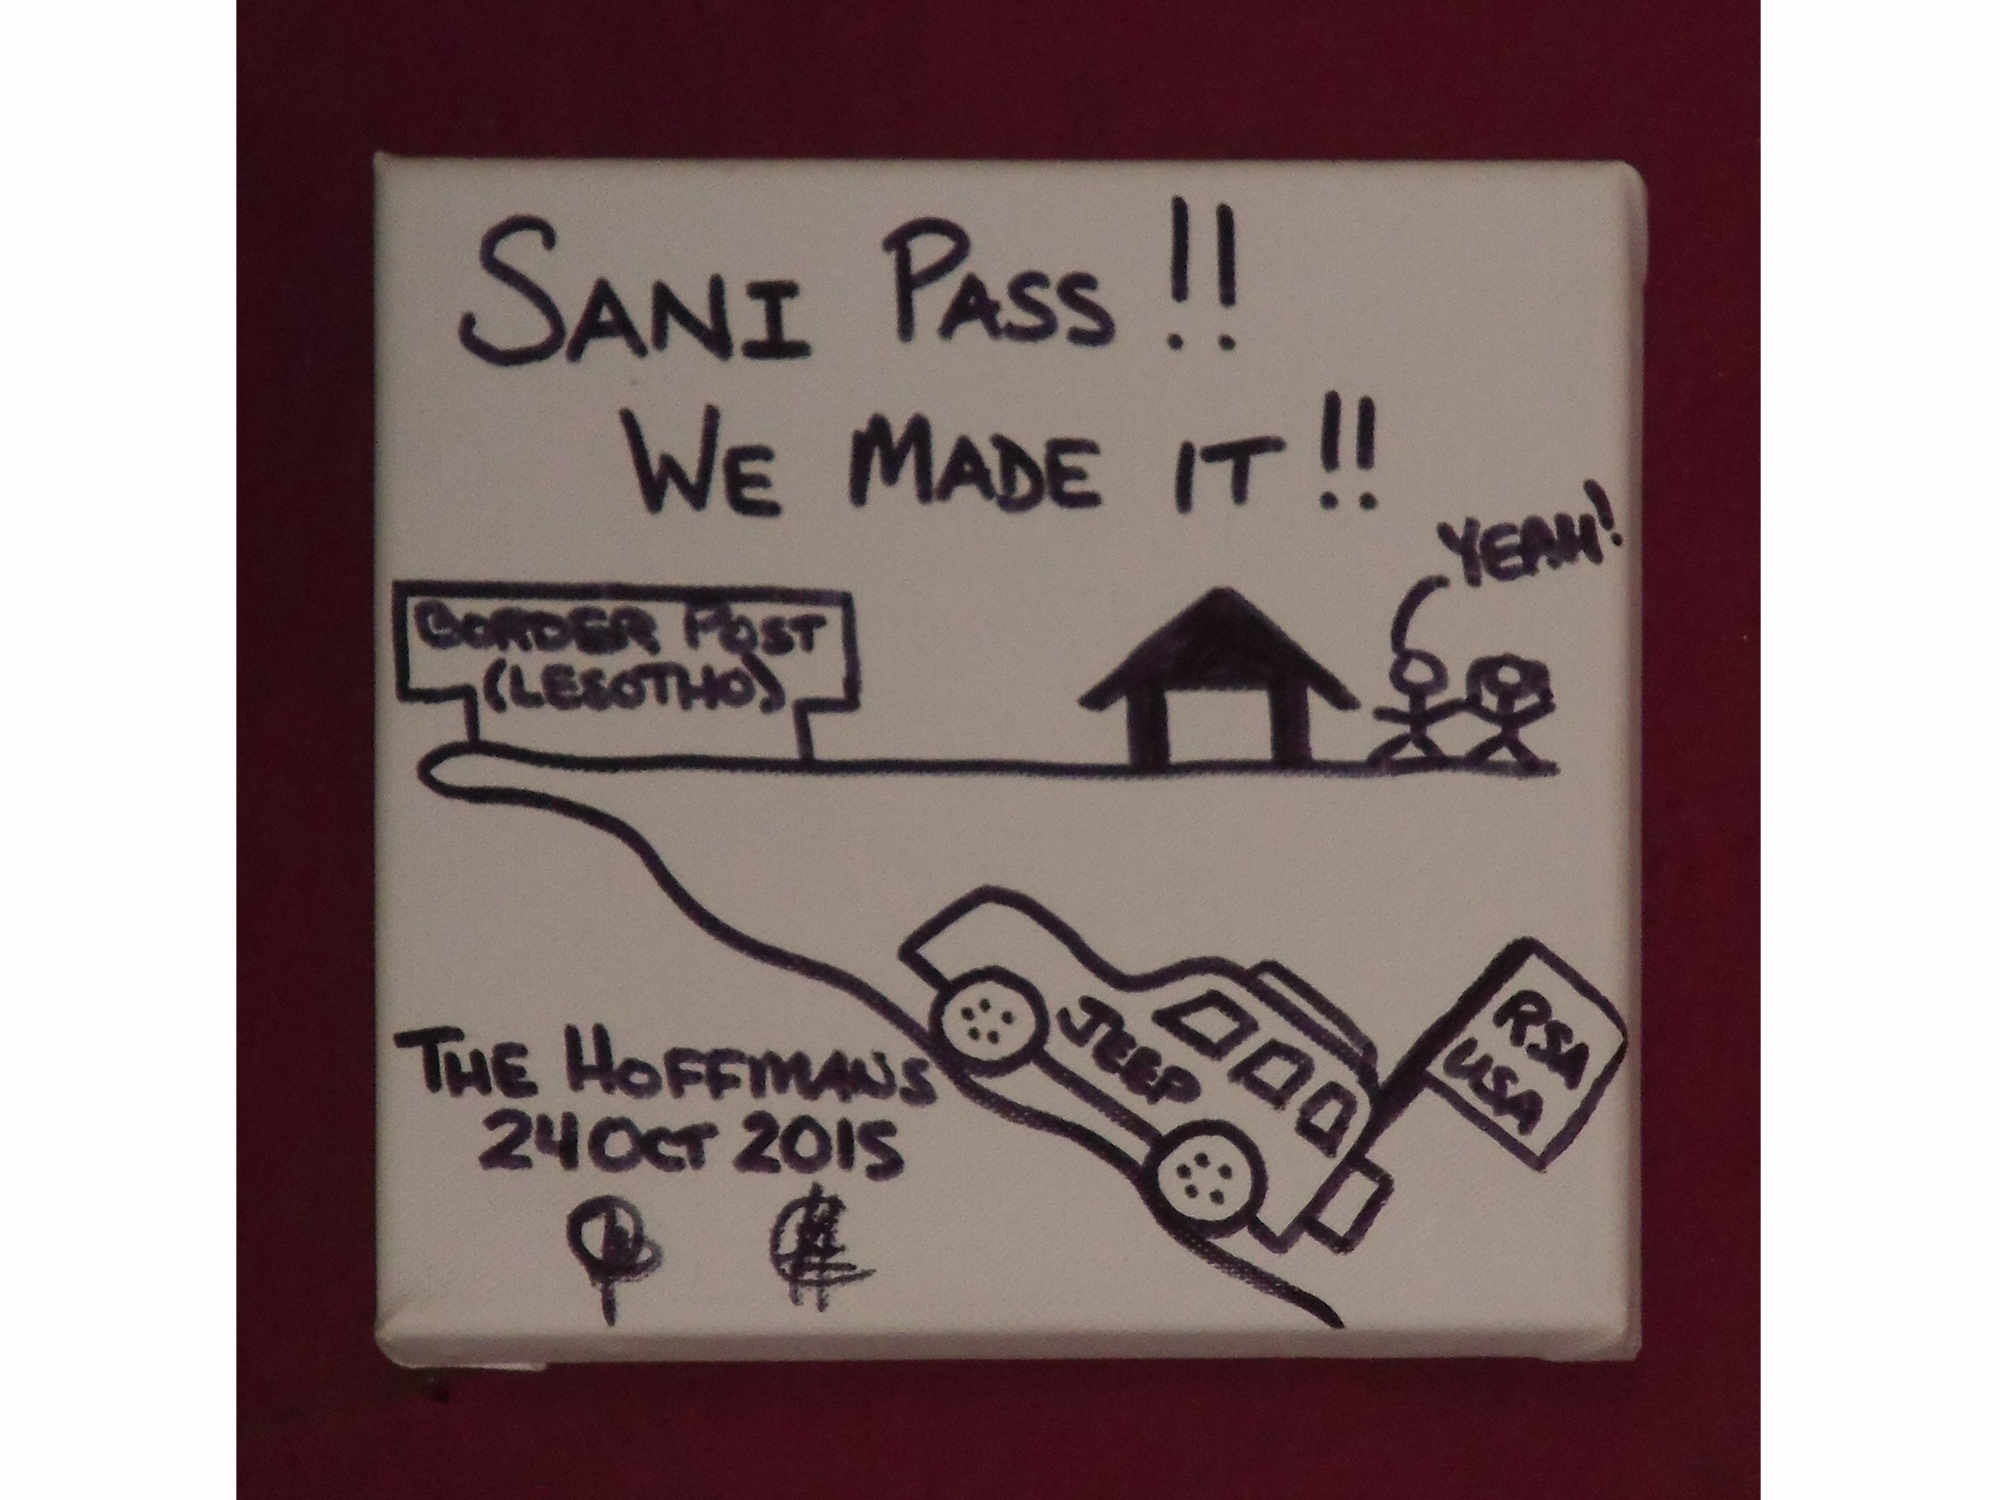 SANI PASS!!
WE MADE IT!!
YEAH!
BORDER POST
(LESOTHO)
JEEP
RSA
USA
THE HOFFMANS
24 OCT 2015